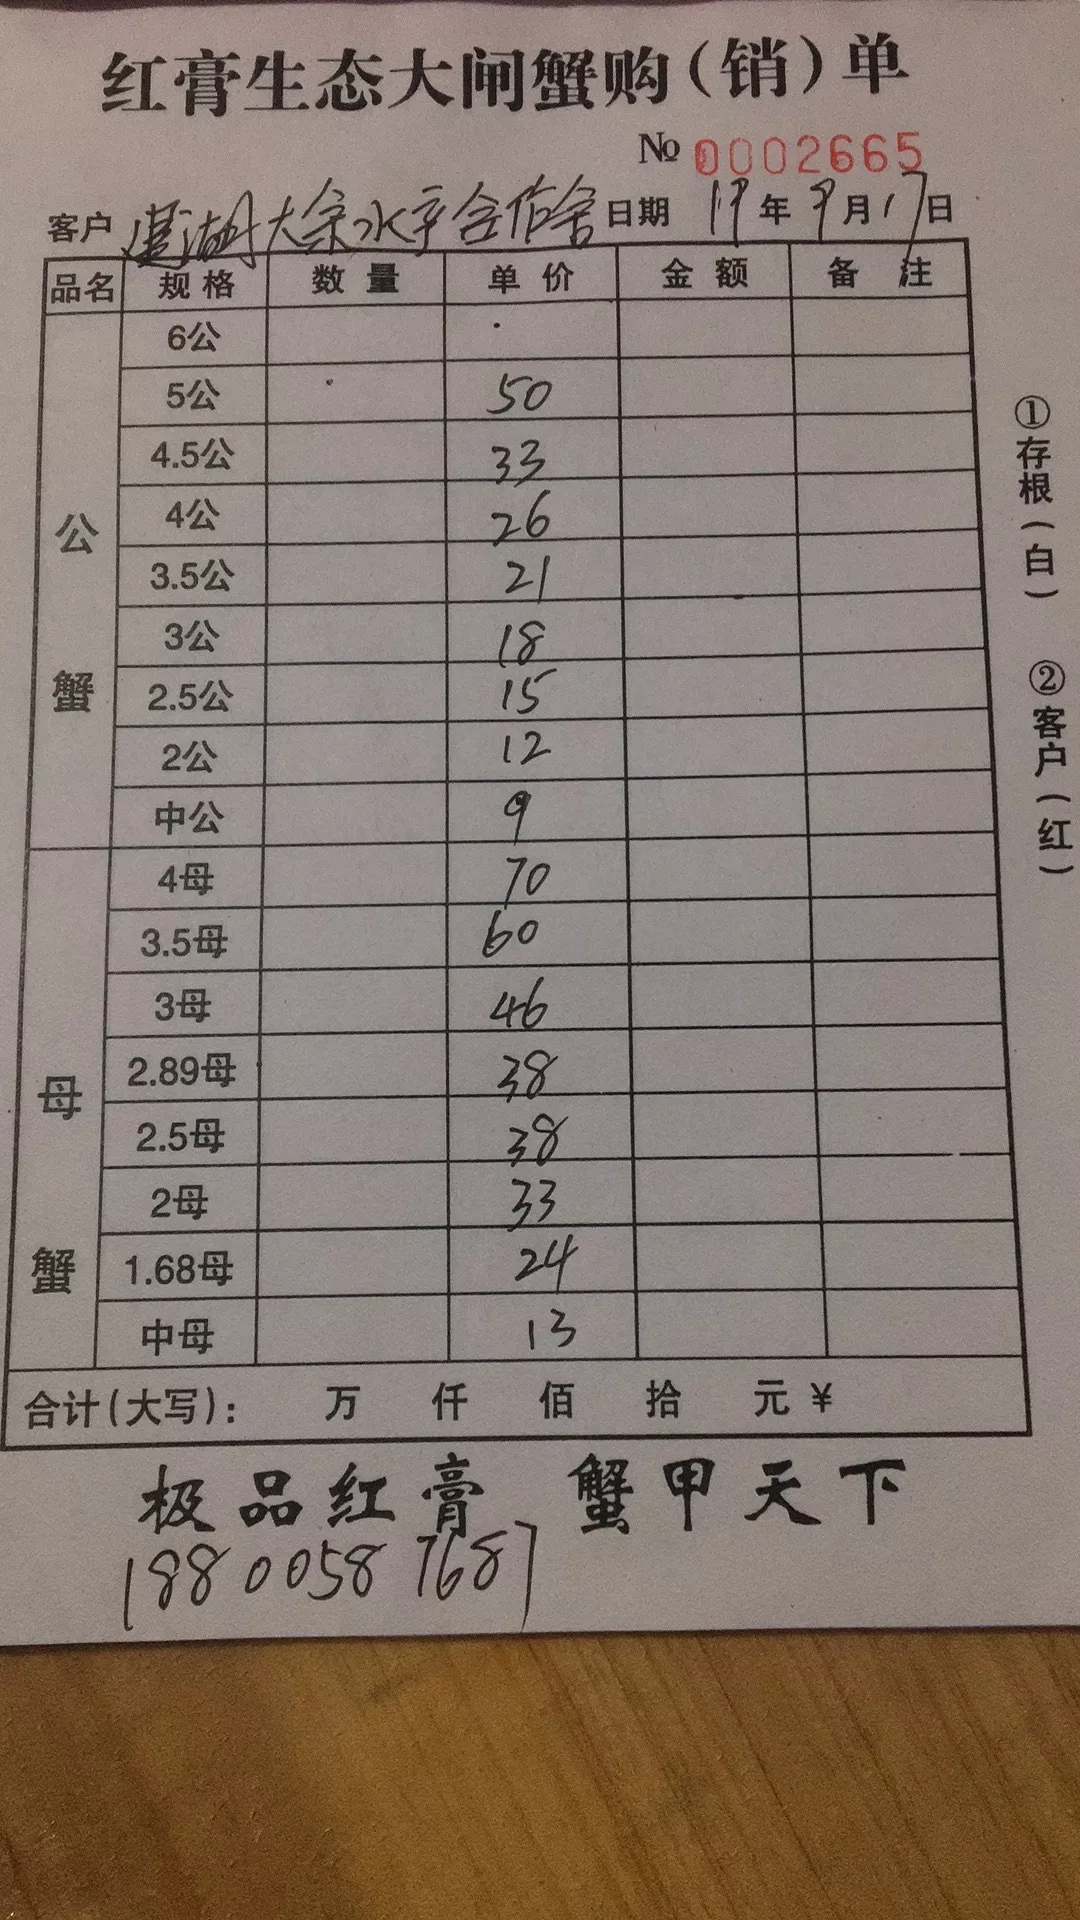 红膏生态大闸蟹购(销)单
№ 0002665
客户 湖大宗水产合作舍 日期 19年9月17日
品名 规格 数量 单价 金额 备注
公蟹
6公
5公 50
4.5公 33
4公 26
3.5公 21
3公 18
2.5公 15
2公 12
中公 9
母蟹
4母 70
3.5母 60
3母 46
2.89母 38
2.5母 38
2母 33
1.68母 24
中母 13
合计(大写): 万 仟 佰 拾 元¥
极品红膏 蟹甲天下
18800587687
①存根(白) ②客户(红)